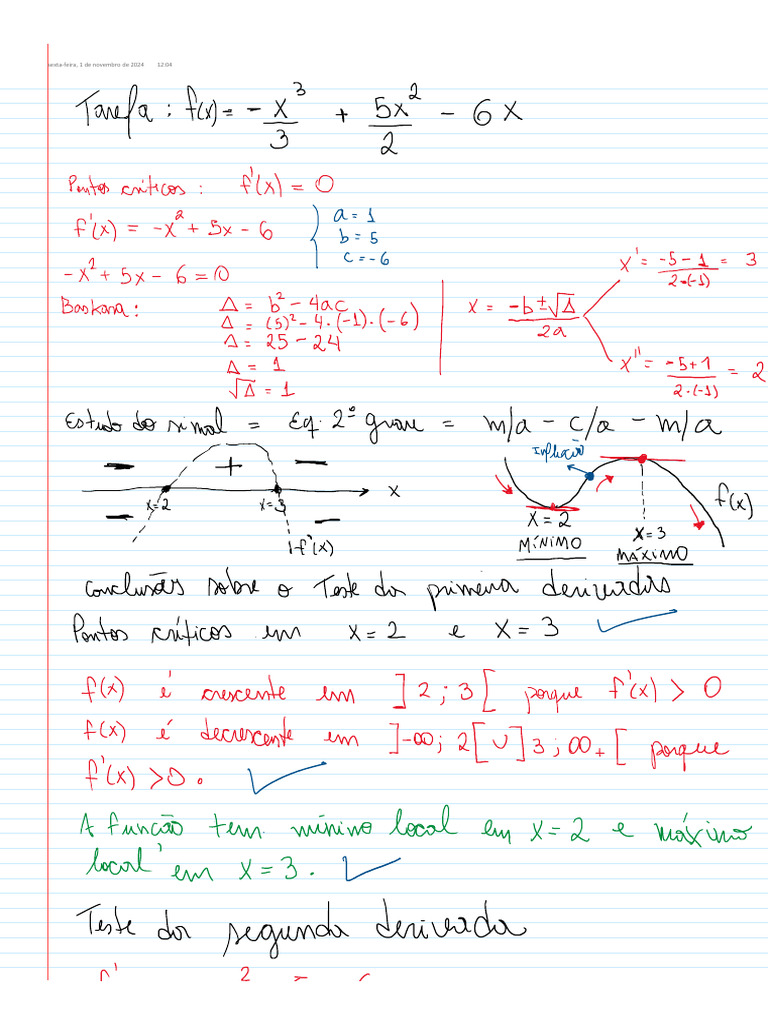 sexta-feira, 1 de novembro de 2024 12:04
Tarefa : f(x) = -x³/3 + 5x²/2 - 6x
Pontos críticos : f'(x) = 0
f'(x) = -x² + 5x - 6
a = 1
b = 5
c = -6
-x² + 5x - 6 = 0
Baskara :
Δ = b² - 4ac
Δ = (5)² - 4·(-1)·(-6)
Δ = 25 - 24
Δ = 1
√Δ = 1
x = -b ± √Δ / 2a
x' = -5 - 1 / 2·(-1) = 3
x'' = -5 + 1 / 2·(-1) = 2
Estudo do sinal = Eq. 2º grau = m/a - c/a - m/a
- + -
x=2 x=3 x
- -
f'(x)
Inflexão
f(x)
x = 2
MÍNIMO
x = 3
MÁXIMO
Conclusões sobre o Teste da primeira derivada
Pontos críticos em x = 2 e x = 3
f(x) é crescente em ]2 ; 3[ porque f'(x) > 0
f(x) é decrescente em ]-∞; 2[ ∪ ]3 ; ∞+[ porque
f'(x) > 0.
A função tem mínino local em x = 2 e máximo
local em x = 3.
Teste da segunda derivada